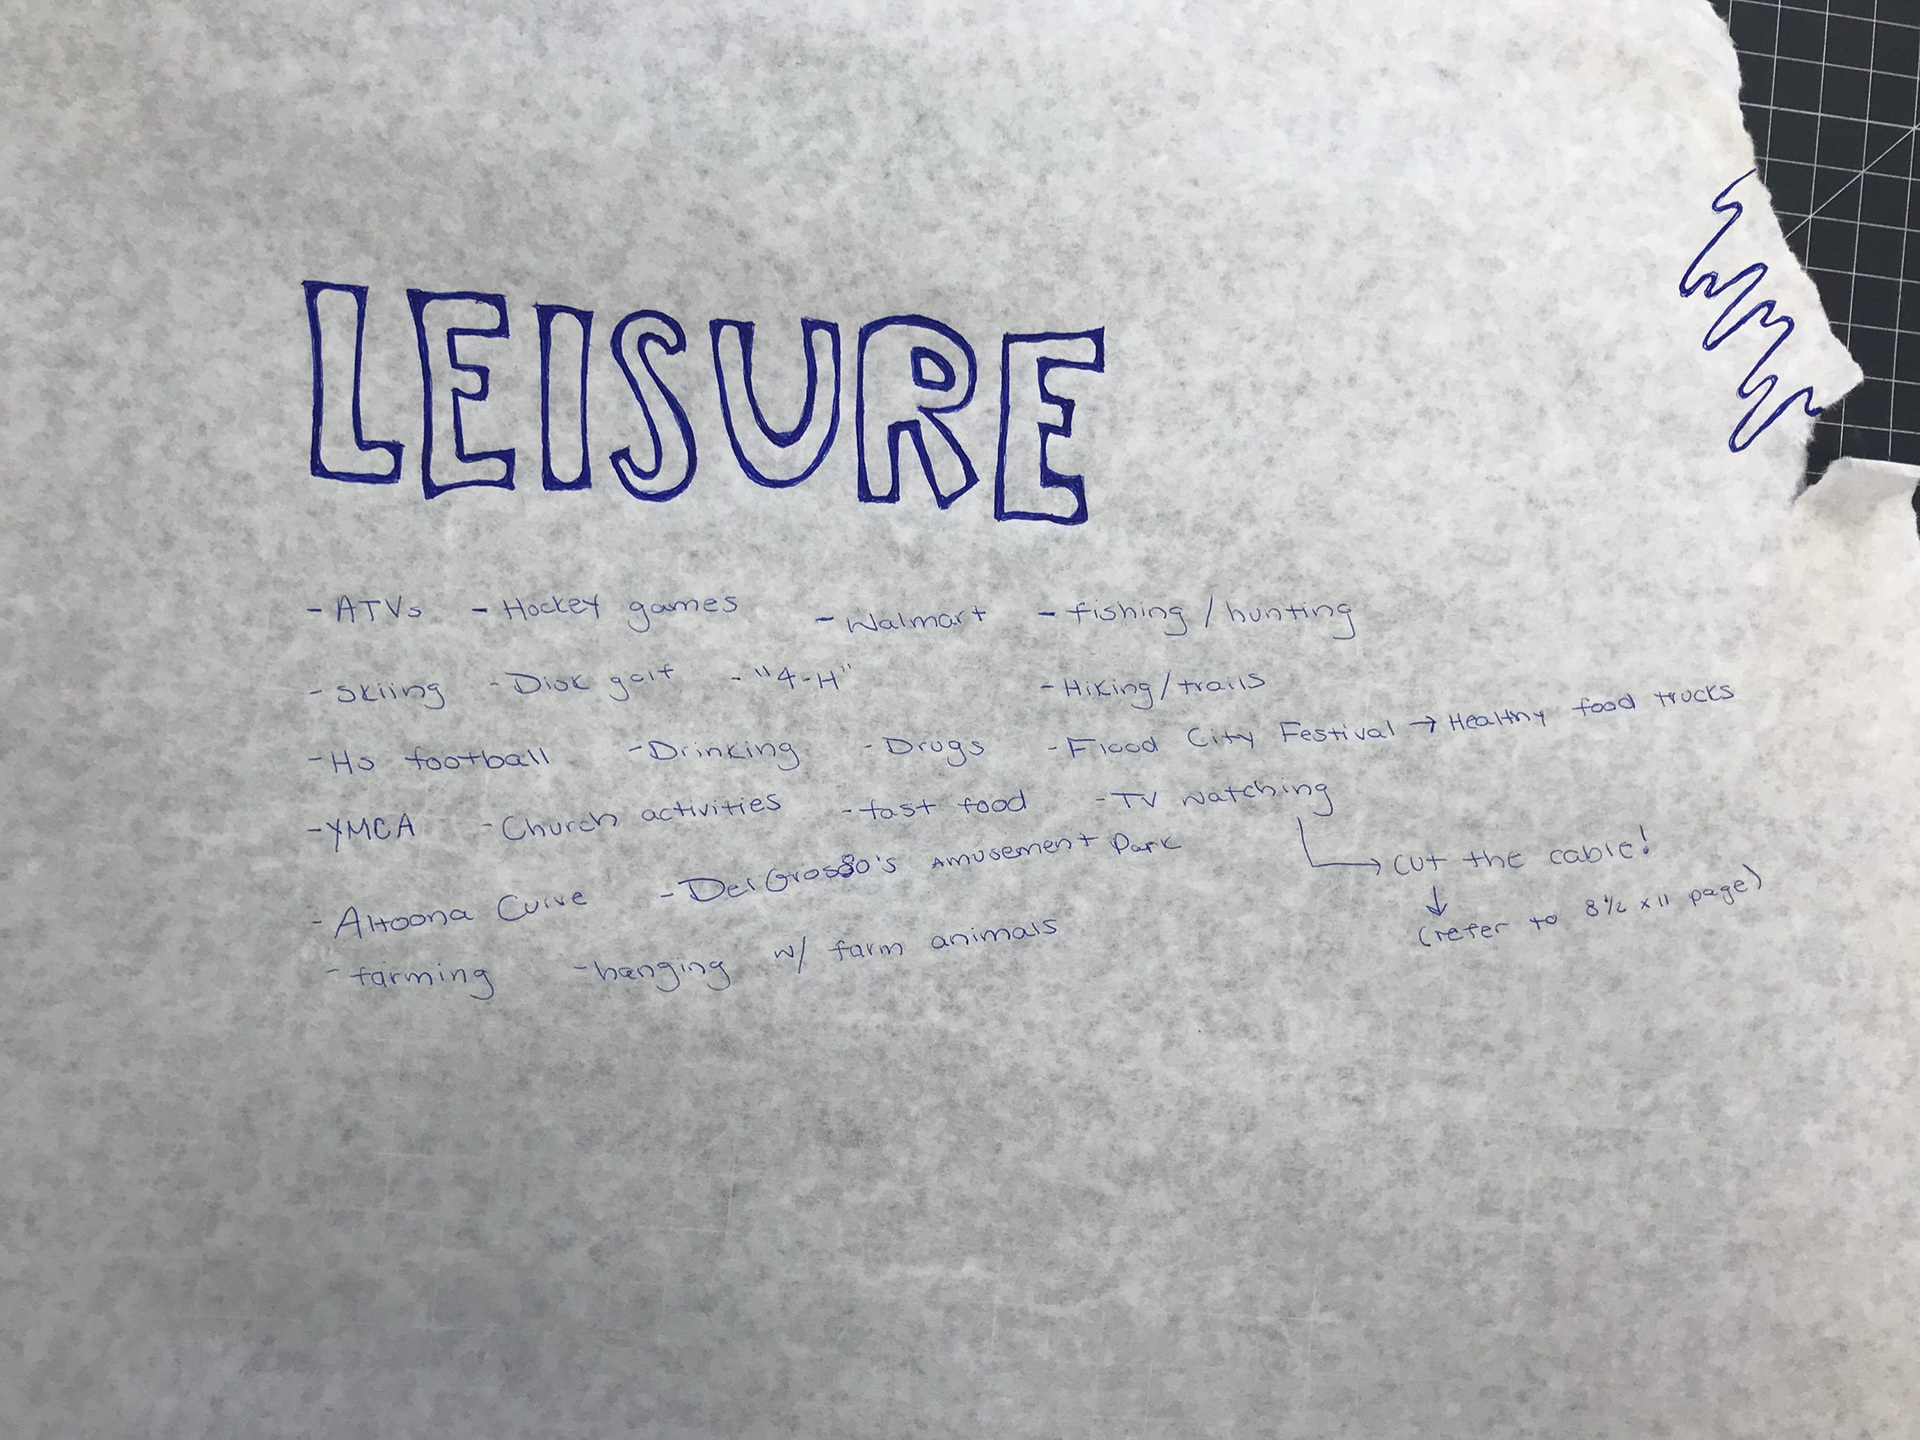 LEISURE
- ATVs - Hockey games - Walmart - fishing / hunting
- skiing - Disk golf - "4-H" - Hiking/trails
- Hs football - Drinking - Drugs - Flood City Festival → Healthy food trucks
- YMCA - Church activities - fast food - TV watching
→ cut the cable!
↓
(refer to 8½ x 11 page)
- Altoona Curve - DelGrosso's Amusement Park
- farming - hanging w/ farm animals